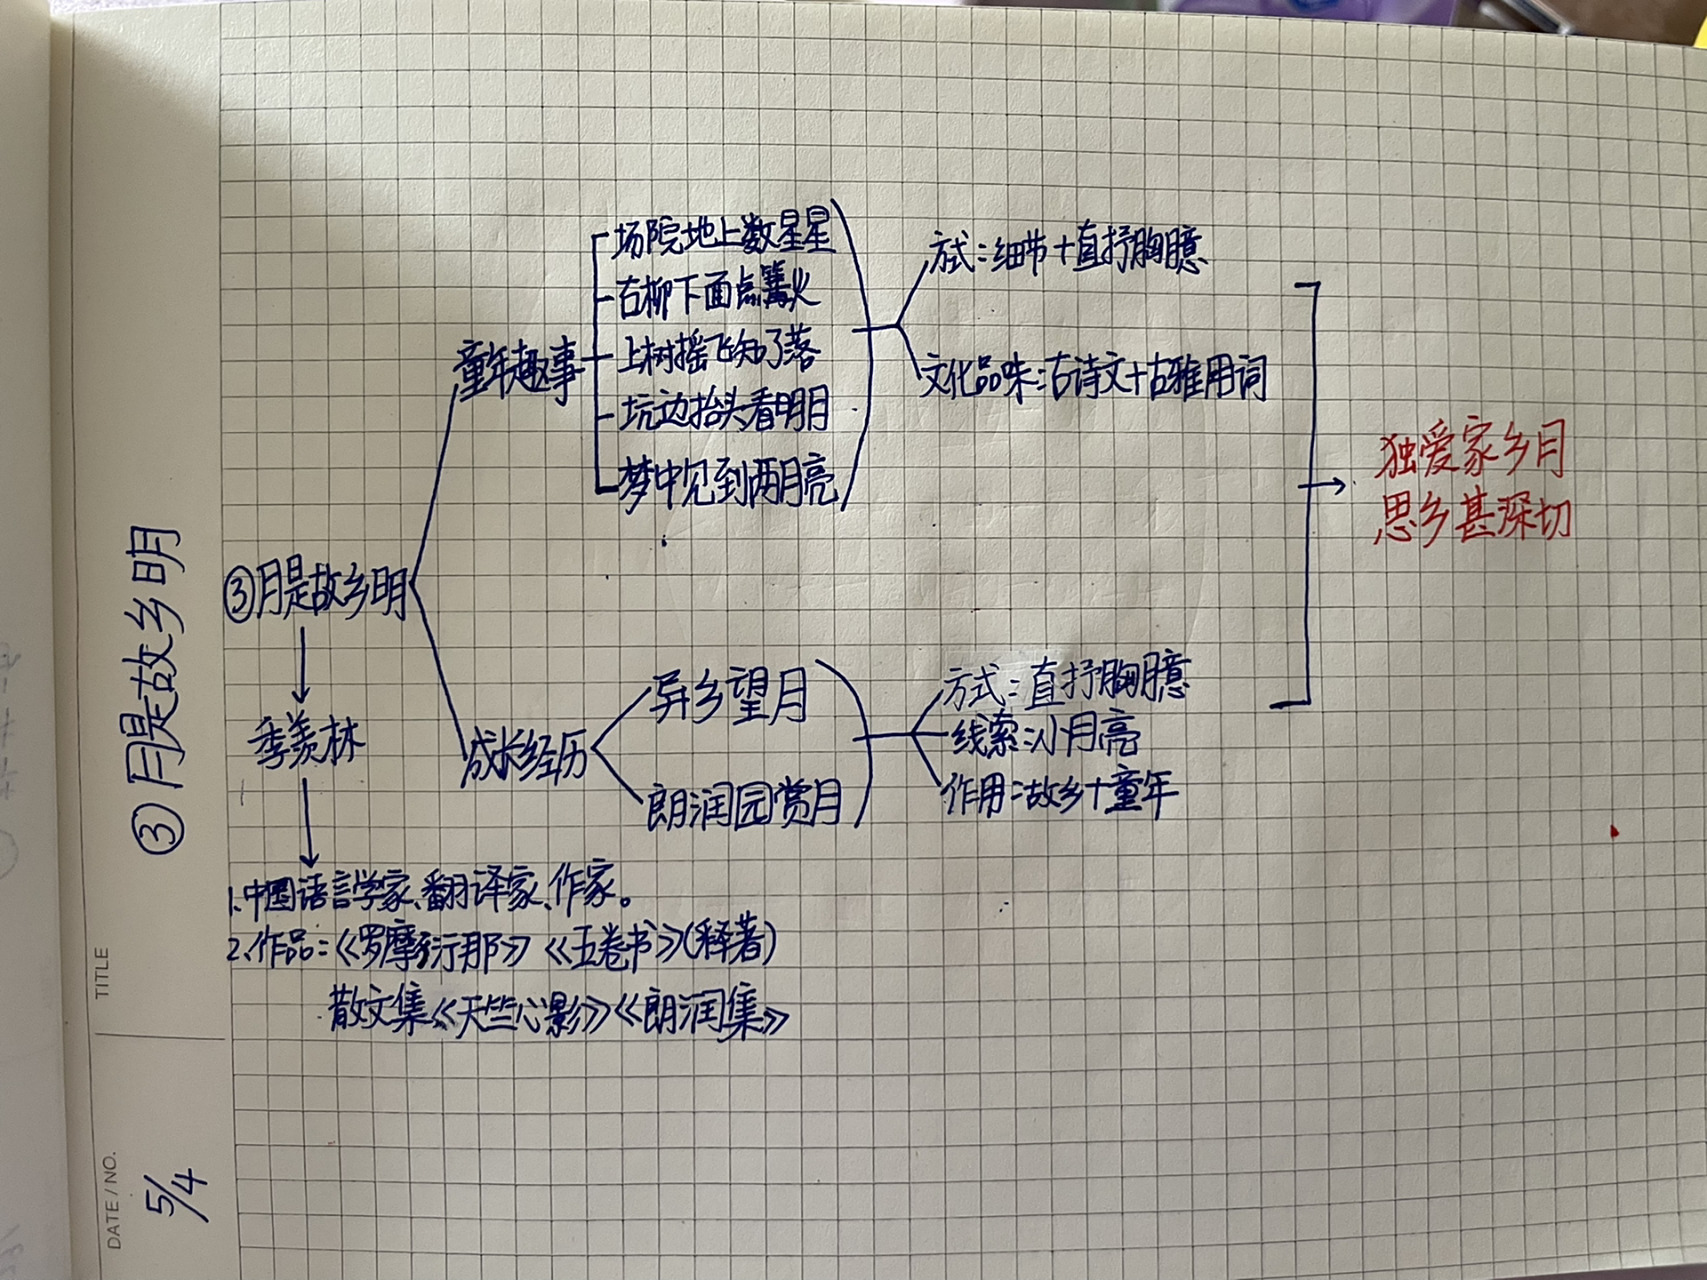 ③月是故乡明
TITLE
DATE / NO.
5/4
③月是故乡明
季羡林
1.中国语言学家、翻译家、作家。
2.作品:《罗摩衍那》《五卷书》(释著)
散文集《天竺心影》《朗润集》
童年趣事
场院地上数星星
古柳下面点篝火
上树摇飞知了落
坑边抬头看明月
梦中见到两月亮
方式:细节+直抒胸臆
文化品味:古诗文+古雅用词
成长经历
异乡望月
朗润园赏月
方式:直抒胸臆
线索:小月亮
作用:故乡+童年
独爱家乡月
思乡甚深切